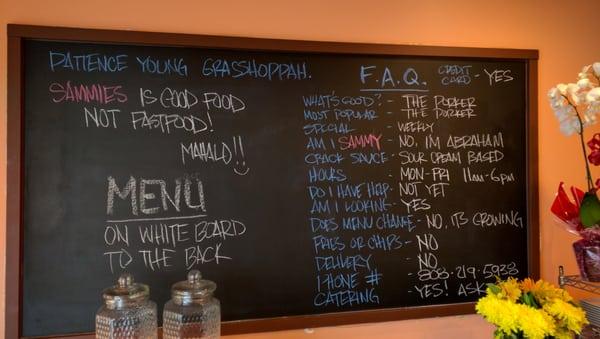 PATIENCE YOUNG GRASSHOPPAH.
SAMMIES IS GOOD FOOD
NOT FASTFOOD!
MAHALO!!
MENU
ON WHITE BOARD
TO THE BACK
F.A.Q. CREDIT CARD - YES
WHAT'S GOOD? - THE PORKER
MOST POPULAR - THE PORKER
SPECIAL - WEEKLY
AM I SAMMY - NO, I'M ABRAHAM
CRACK SAUCE - SOUR CREAM BASED
HOURS - MON-FRI 11am-6pm
DO I HAVE HAP - NOT YET
AM I LOOKING - YES
DOES MENU CHANGE - NO, ITS GROWING
FRIES OR CHIPS - NO
DELIVERY - NO
PHONE # - 808-219-5938
CATERING - YES! ASK